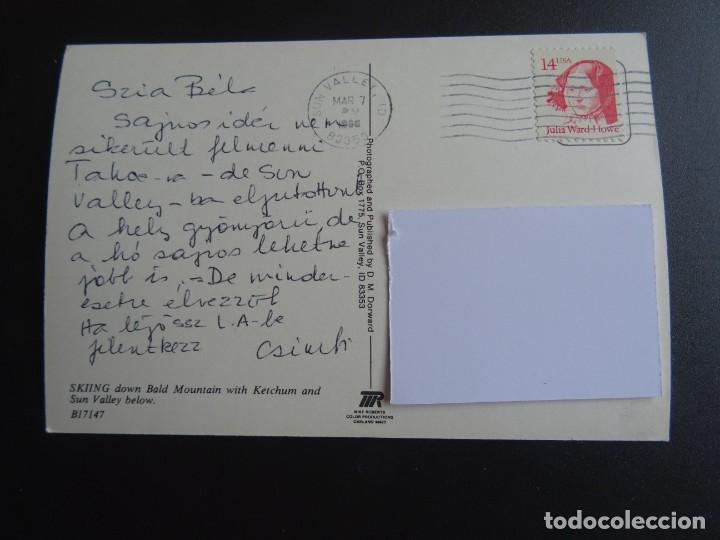 Szia Béla
Sajnos idén nem
sikerült felmenni
Tahoe-ra - de Sun
Valley-ba eljutottunk
A hely gyönyörü, de
a hó sajnos lehetne
jobb is, - De minden-
esetre élvezzük
Ha léjössz L.A-be
jelentkezz
SKIING down Bald Mountain with Ketchum and
Sun Valley below.
B17147
Photographed and Published by D. M. Dorward
P.O. Box 1775, Sun Valley, ID 83353
MIKE ROBERTS
COLOR PRODUCTIONS
OAKLAND 94623
SUN VALLEY, ID
MAR 7
PM
83353
14 USA
Julia Ward Howe
todocoleccion.net